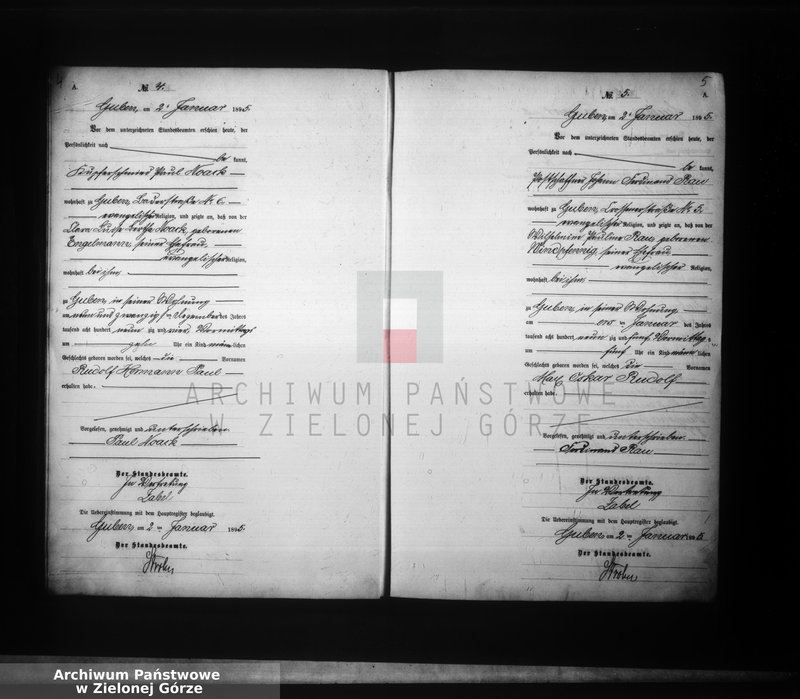 A.
№ 4.
Guben, am 2t Januar 1895.
Vor dem unterzeichneten Standesbeamten erschien heute, der
Persönlichkeit nach
be kannt,
Kupferschmied Paul Noack
wohnhaft zu Guben,
evangelischer Religion, und zeigte an, daß von der
Clara Noack geborenen
Engelmann, seiner Ehefrau
evangelischer Religion,
wohnhaft bei ihm
zu Guben in seiner Wohnung
am neun und zwanzigsten Dezember des Jahres
tausend acht hundert neun zig und vier Vormittags
um zehn Uhr ein Kind männ lichen
Geschlechts geboren worden sei, welches die Vornamen
Rudolf Hermann Paul
erhalten habe.
Vorgelesen, genehmigt und unterschrieben
Paul Noack
Der Standesbeamte.
In Vertretung
Zabel
Die Uebereinstimmung mit dem Hauptregister beglaubigt.
Guben, am 2 ten Januar 1895.
Der Standesbeamte.
5
№ 5.
A.
Guben, am 2t Januar 1895.
Vor dem unterzeichneten Standesbeamten erschien heute, der
Persönlichkeit nach
be kannt,
Postschaffner Johann Ferdinand Rau
wohnhaft zu Guben, Crossenerstraße № 5.
evangelischer Religion, und zeigte an, daß von der
Wilhelmine Pauline Rau geborenen
Windpfennig, seiner Ehefrau
evangelischer Religion,
wohnhaft bei ihm
zu Guben, in seiner Wohnung
am ten Januar des Jahres
tausend acht hundert neun zig und fünf Vormittags
um fünf Uhr ein Kind männ lichen
Geschlechts geboren worden sei, welches die Vornamen
Max Oskar Rudolf
erhalten habe.
Vorgelesen, genehmigt und unterschrieben
Ferdinand Rau
Der Standesbeamte.
In Vertretung
Zabel
Die Uebereinstimmung mit dem Hauptregister beglaubigt.
Guben, am 2 ten Januar 1895
Der Standesbeamte.
ARCHIWUM PAŃSTWOWE
W ZIELONEJ GÓRZE
Archiwum Państwowe
w Zielonej Górze